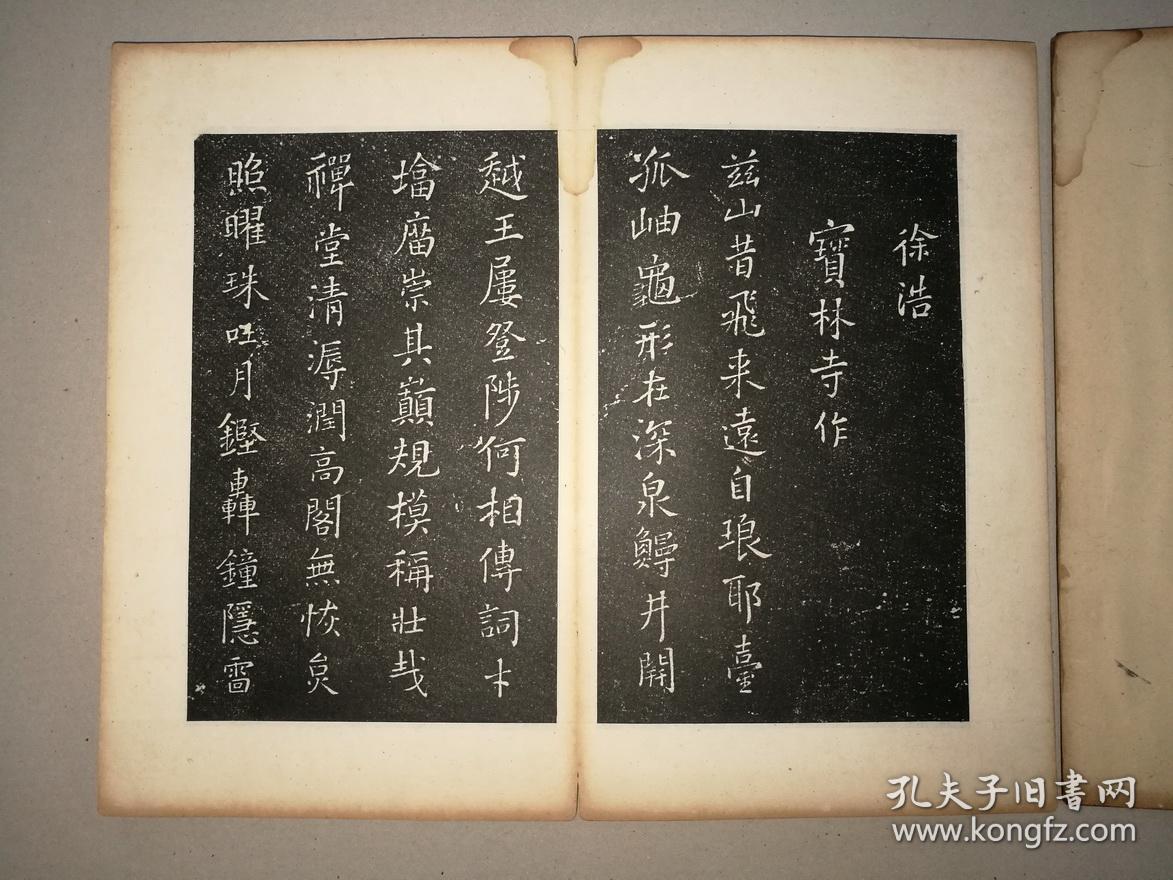 徐浩
寶林寺作
茲山昔飛来遠自琅耶臺
孤岫龜形在深泉鰻井開
越王屢登陟何相傳詞才
塔廟崇其巔規模稱壯㦲
禪堂清溽潤高閣無恢炱
照曜珠吐月鏗轟鐘隱雷
孔夫子旧书网
www.kongfz.com